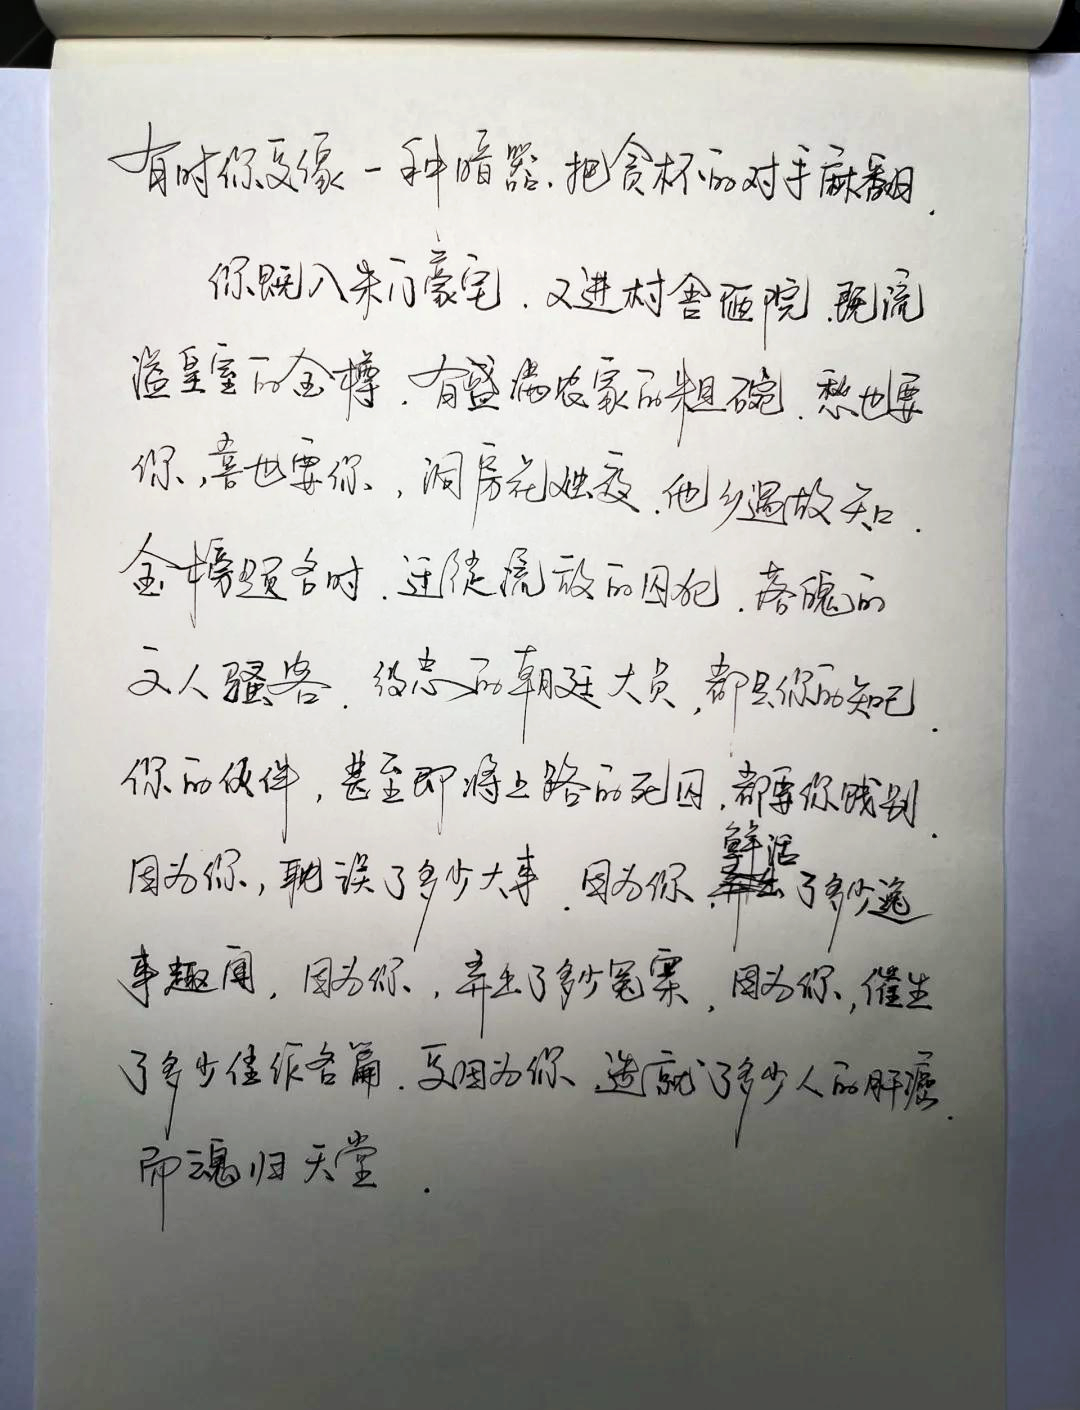 有时你又像一种暗器.把贪杯的对手麻翻.
你既入朱门豪宅.又进村舍陋院.既流
溢皇室的金樽.有盛满农家的粗碗.愁也要
你,喜也要你,洞房花烛夜.他乡遇故知.
金榜题名时.迁徙流放的囚犯.落魄的
文人骚客.得志的朝廷大员,都是你的知己.
你的伙伴,甚至即将上路的死囚,都要你践别.
因为你,耽误了多少大事.因为你,鲜活了多少逸
事趣闻,因为你,弄出了多少冤案,因为你,催生
了多少佳作名篇.又因为你.造就了多少人的肝癌.
而魂归天堂.